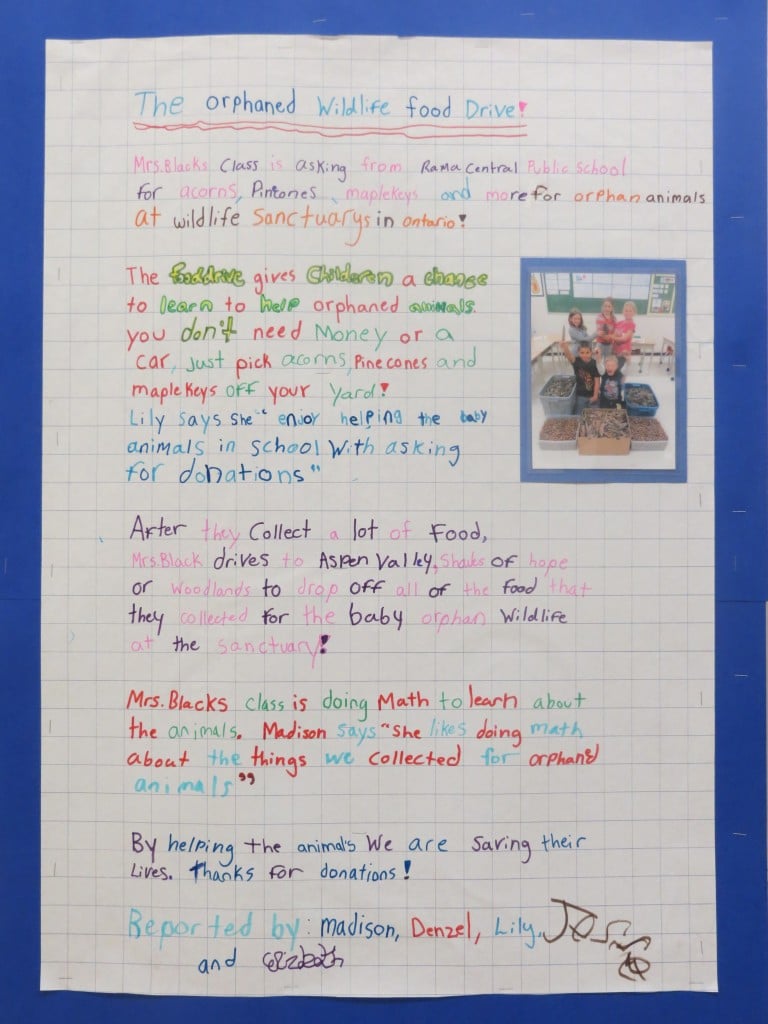 The orphaned Wildlife food Drive!
Mrs.Blacks Class is asking from Rama Central Public School
for acorns, Pintones, maplekeys and more for orphan animals
at wildlife Sanctuarys in ontario!
The fooddrive gives Children a change
to learn to help orphaned animals.
you don't need Money or a
car, just pick acorns, Pinecones and
maplekeys off your yard!
Lily says she "enjoy helping the baby
animals in school With asking
for donations"
After they Collect a lot of Food,
Mrs.Black drives to Aspen Valley, Shades Of hope
or Woodlands to drop off all of the food that
they collected for the baby orphan Wildlife
at the sanctuary!
Mrs.Blacks class is doing Math to learn about
the animals. Madison says "She likes doing math
about the things we collected for orphand
animals"
By helping the animals We are Saving their
Lives. thanks for donations!
Reported by: madison, Denzel, Lily, Jessie
and elizabeth